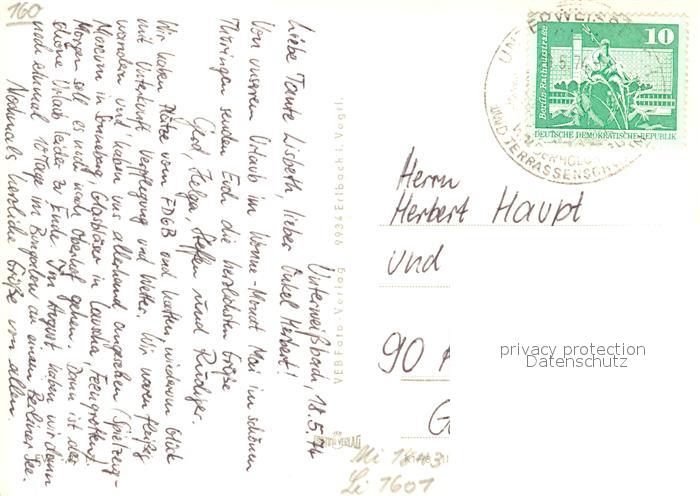 160
Unterweißbach, 18.5.74
Liebe Tante Lisbeth, lieber Onkel Herbert!
Von unserem Urlaub im Wonne-Monat Mai im schönen
Thüringen senden Euch die herzlichsten Grüße
Gerd, Helga, Steffen und Rüdiger.
Wir haben Plätze vom FDGB und hatten wiederum Glück
mit Unterkunft, Verpflegung und Wetter. Wir waren fleißig
wandern und haben uns allerhand angesehen (Spielzeug-
Museum in Sonneberg, Glasbläser in Lauscha, Feengrotten).
Morgen soll es noch nach Oberhof gehen. Dann ist der
schöne Urlaub leider zu Ende. Im August haben wir dann
noch einmal 10 Tage im Bungalow an einem Berliner See.
Nochmals herzliche Grüße von allen.
VEB Foto-Verlag 9934 Erlbach i. Vogtl.
10
Berlin-Rathausstraße
DEUTSCHE DEMOKRATISCHE REPUBLIK
UNTERWEISSB
5.74
UND TERRASSENSCH
Herrn
Herbert Haupt
und
90
G
privacy protection
Datenschutz
VERLAG
Mi 1843
Li 7601